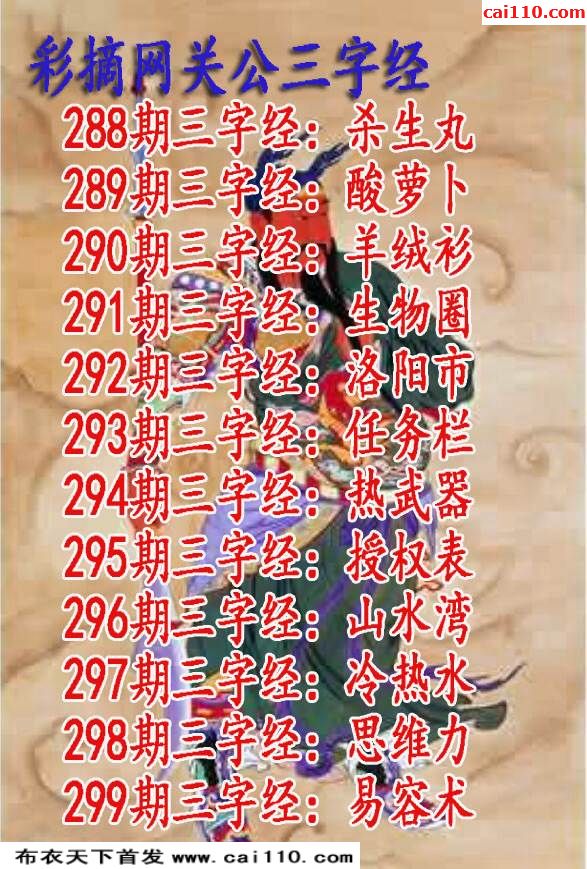 cai110.com
彩摘网关公三字经
288期三字经：杀生丸
289期三字经：酸萝卜
290期三字经：羊绒衫
291期三字经：生物圈
292期三字经：洛阳市
293期三字经：任务栏
294期三字经：热武器
295期三字经：授权表
296期三字经：山水湾
297期三字经：冷热水
298期三字经：思维力
299期三字经：易容术
布衣天下首发 www.cai110.com